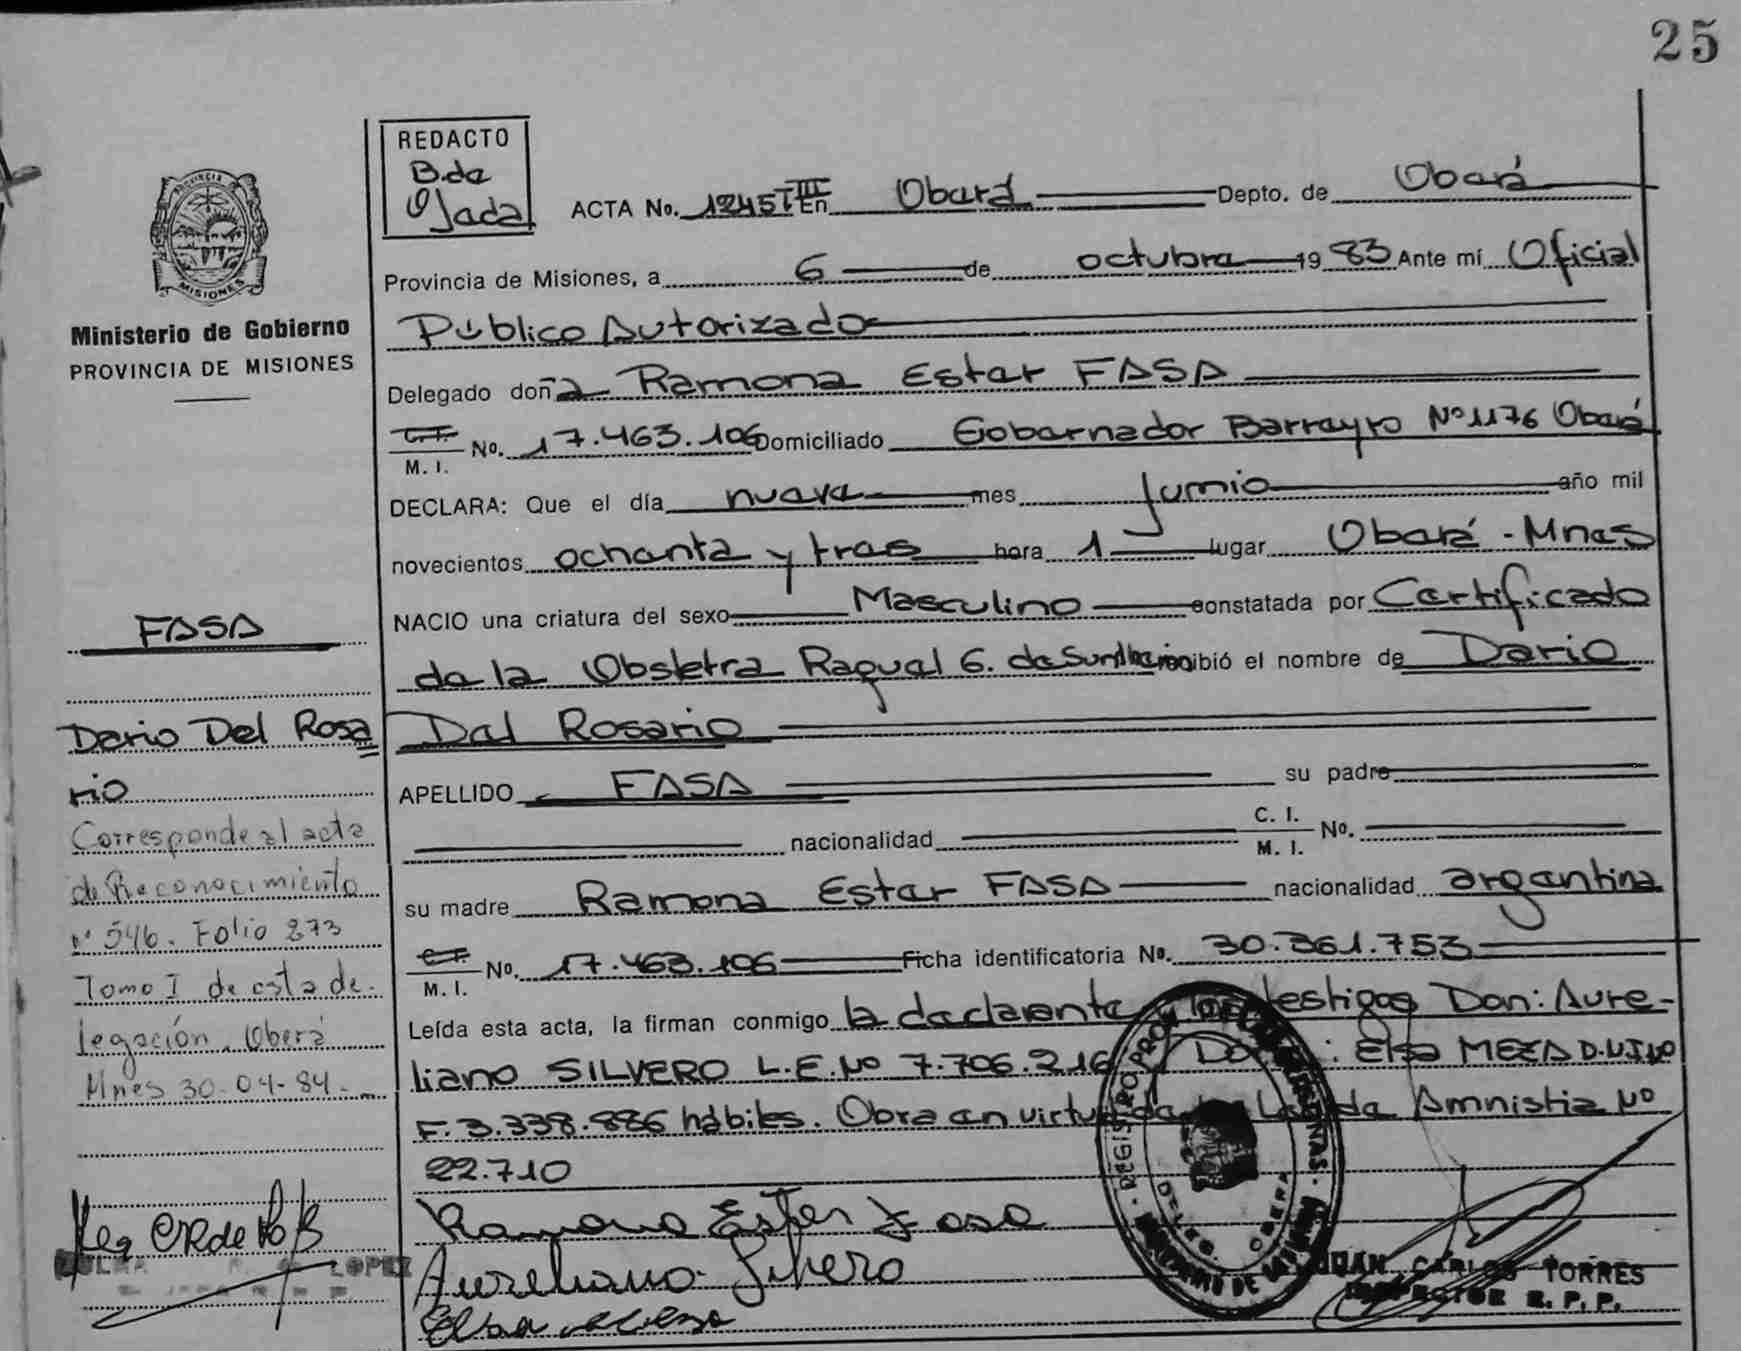 25
REDACTO
B.de
Ojeda
ACTA No. 1245 T III En Oberá Depto. de Oberá
Provincia de Misiones, a 6 de octubre 1983 Ante mí Oficial
Público Autorizado
Delegado doña Ramona Ester FASA
C.I. M. I. No. 17.463.106 Domiciliado Gobernador Barreyro Nº 1176 Oberá
DECLARA: Que el día nueve mes Junio año mil
novecientos ochenta y tres hora 1 lugar Oberá - Mnes
NACIO una criatura del sexo Masculino constatada por Certificado
de la Obstetra Raquel G. de recibió el nombre de Dario
Del Rosario
APELLIDO FASA su padre
nacionalidad C. I. M. I. No.
su madre Ramona Ester FASA nacionalidad argentina
C.I. M. I. No. 17.463.106 Ficha identificatoria No. 30.361.753
Leída esta acta, la firman conmigo la declarante y los testigos Don: Aure-
liano SILVERO L.E. Nº 7.706.216 y Doña: Elsa MEZA D.N.I. Nº
F.3.338.886 hábiles. Obra en virtud de la Ley de Amnistia Nº
22.710
Ramona Ester Fasa
Aureliano Silvero
Elsa Meza
PROVINCIA DE
MISIONES
Ministerio de Gobierno
PROVINCIA DE MISIONES
FASA
Dario Del Rosa
rio
Corresponde al acta
de Reconocimiento
nº 546. Folio 273
Tomo I de esta de-
legación. Oberá
Mnes 30-04-84.-
LOPEZ
REGISTRO PROV. DE LAS PERSONAS
DELEG. OBERA
JUAN CARLOS TORRES
INSPECTOR R. P. P.